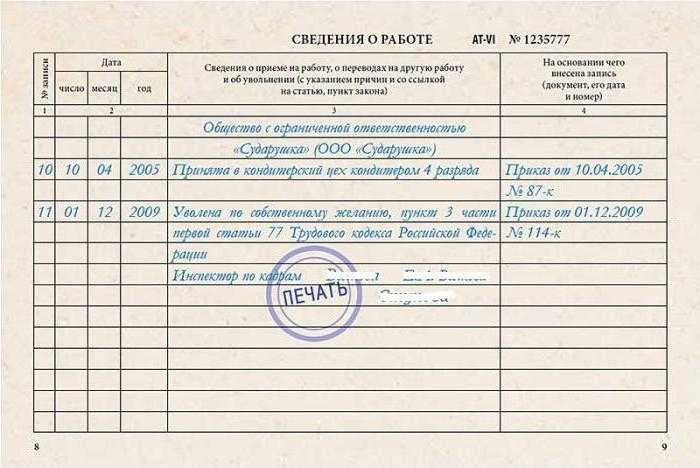 СВЕДЕНИЯ О РАБОТЕ АТ-VI № 1235777
№ записи
Дата
Сведения о приеме на работу, о переводах на другую работу
и об увольнении (с указанием причин и со ссылкой
на статью, пункт закона)
На основании чего
внесена запись
(документ, его дата
и номер)
число месяц год
1 2 3 4
Общество с ограниченной ответственностью
«Сударушка» (ООО «Сударушка»)
10 10 04 2005 Принята в кондитерский цех кондитером 4 разряда Приказ от 10.04.2005
№ 87-к
11 01 12 2009 Уволена по собственному желанию, пункт 3 части Приказ от 01.12.2009
первой статьи 77 Трудового кодекса Российской Феде- № 114-к
рации
Инспектор по кадрам
ПЕЧАТЬ
8 9